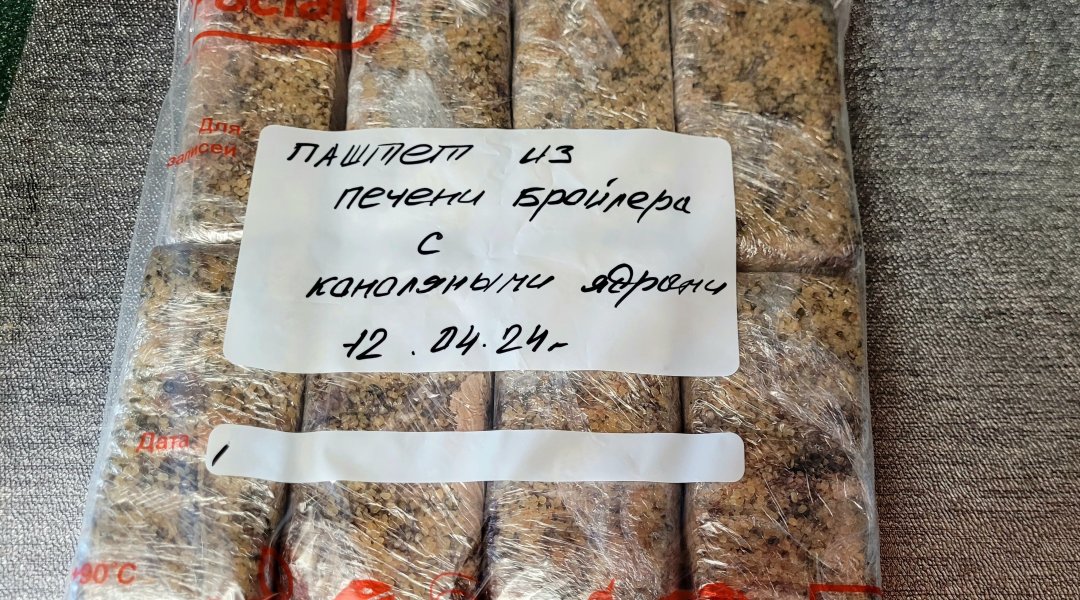 Для
записей
ПАШТЕТ ИЗ
печени Бройлера
с
каноляными ядрами
12.04.24г
Дата
90°C